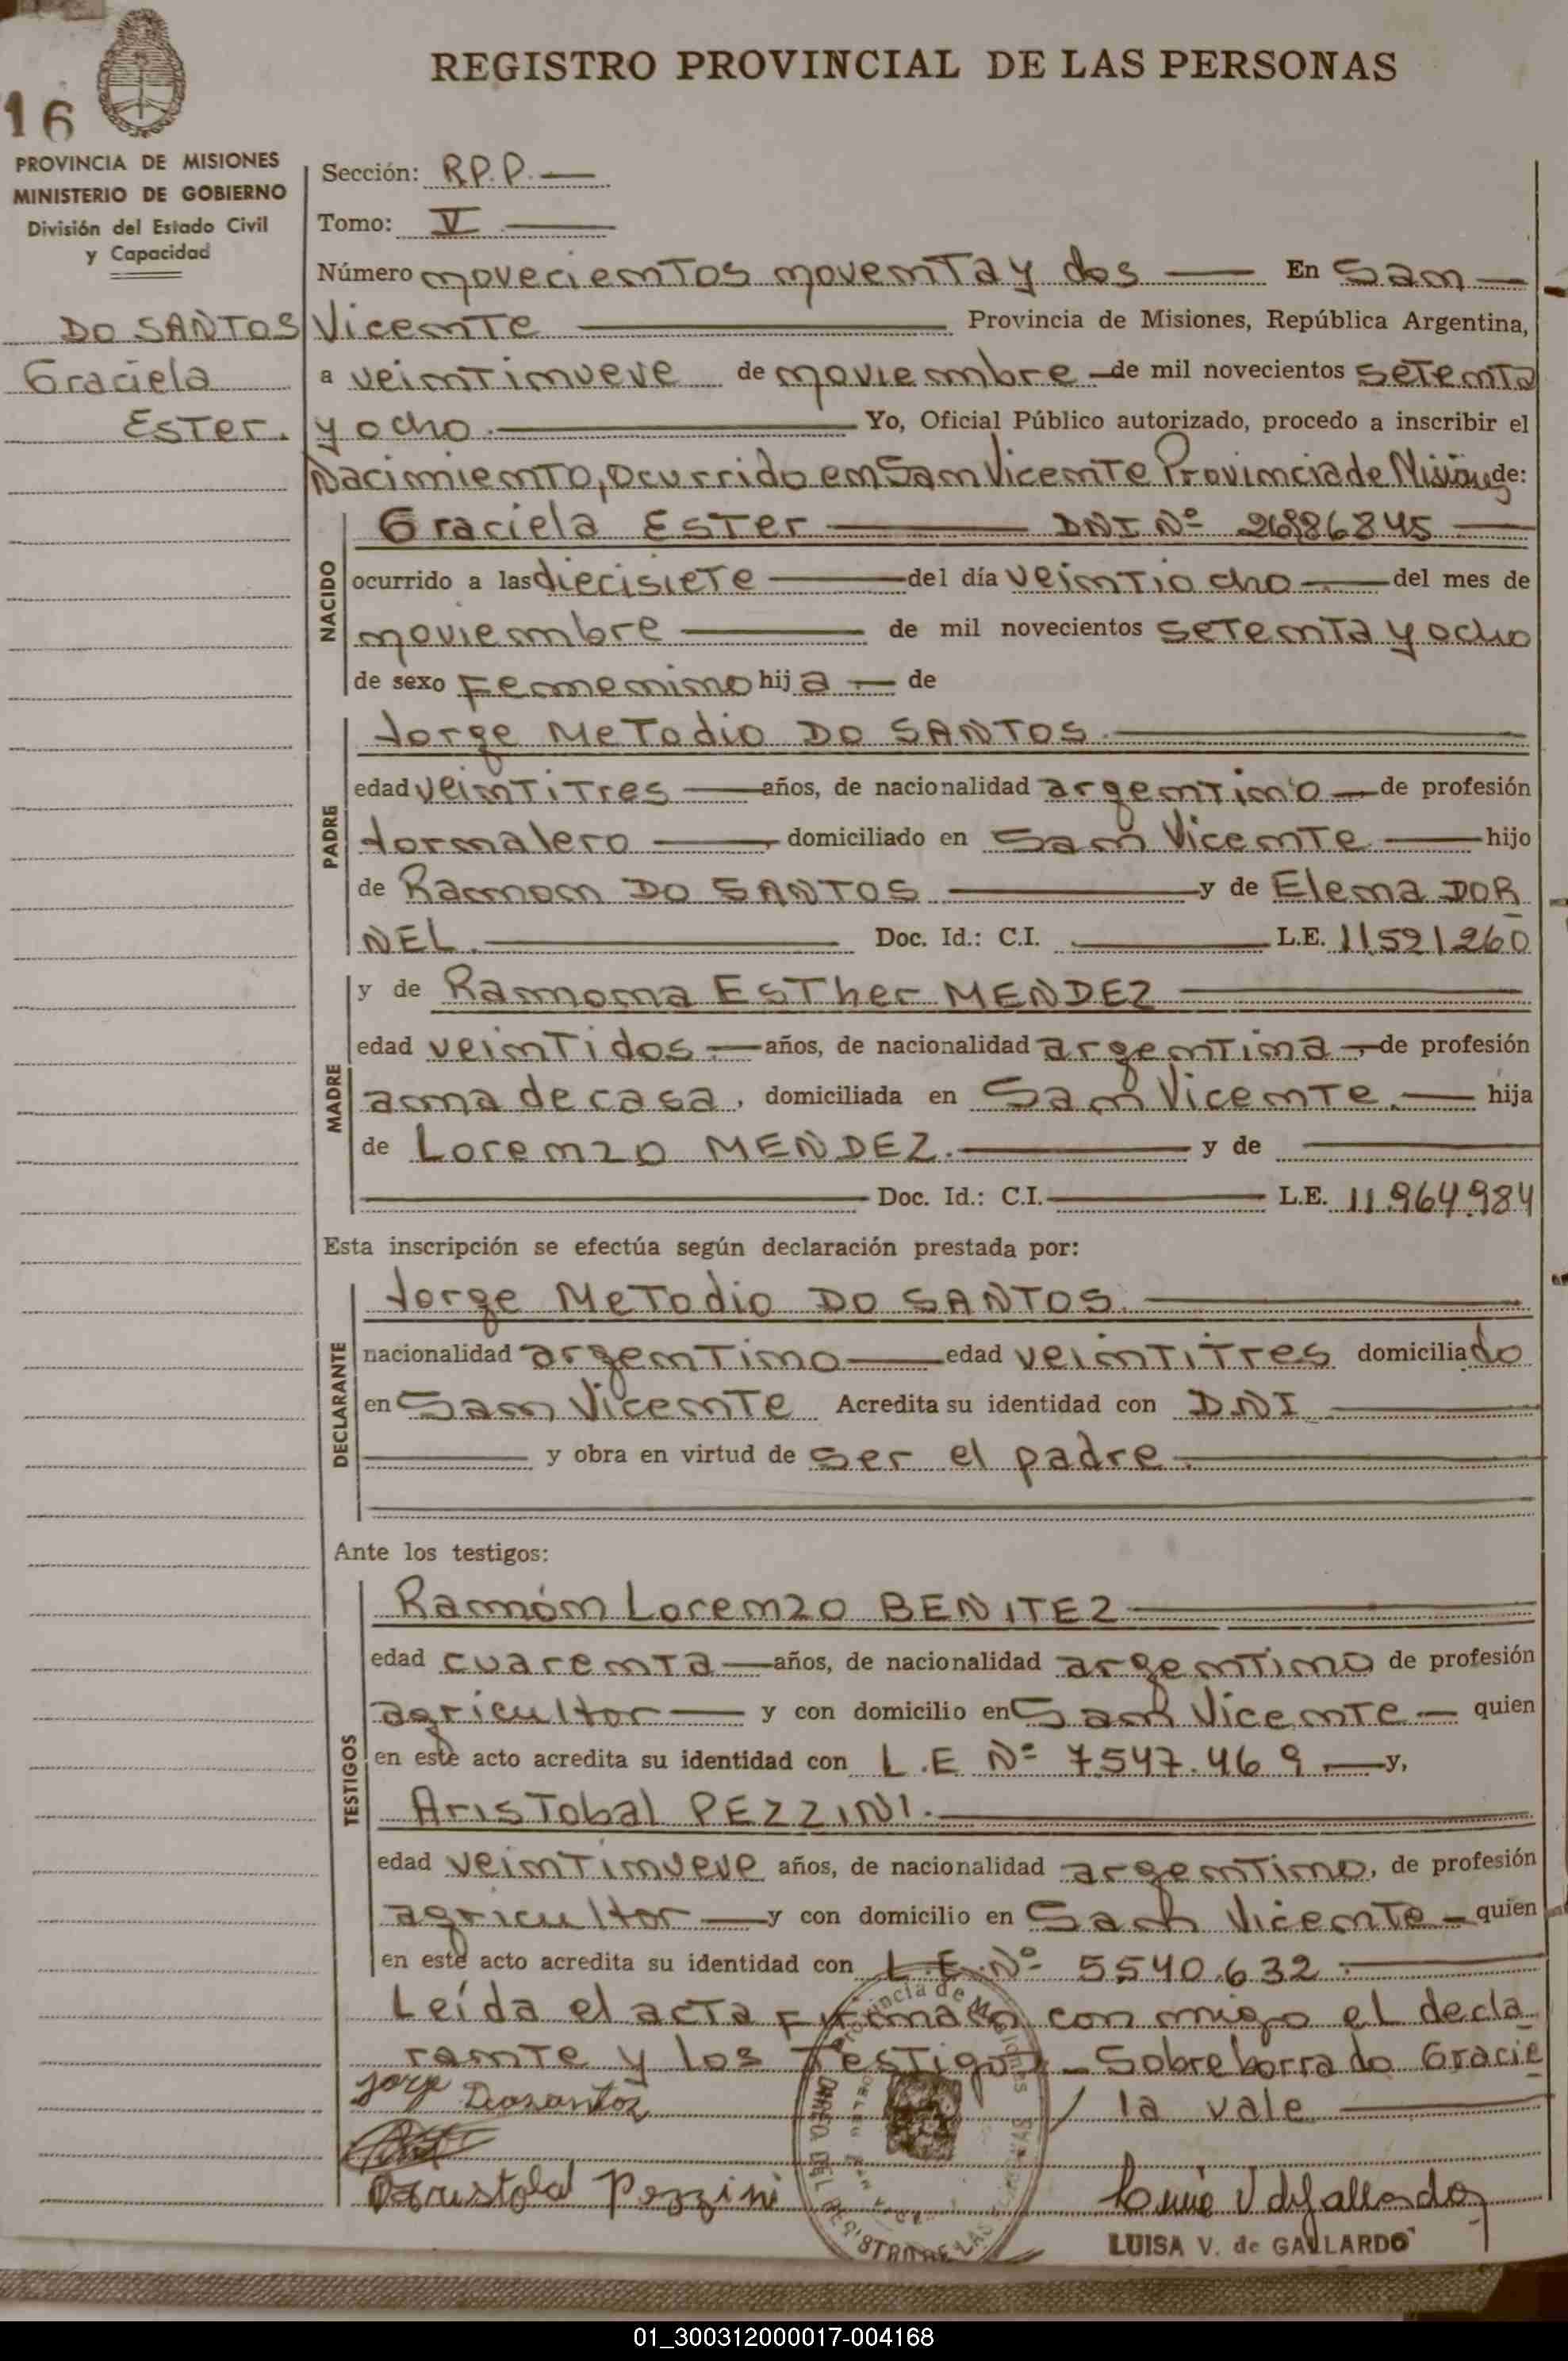 REGISTRO PROVINCIAL DE LAS PERSONAS
16
PROVINCIA DE MISIONES
MINISTERIO DE GOBIERNO
División del Estado Civil
y Capacidad
DO SANTOS
Graciela
Ester.
Sección: R.P.P.
Tomo: V
Número novecientos noventa y dos En San
Vicente Provincia de Misiones, República Argentina,
a veintinueve de noviembre de mil novecientos setenta
y ocho. Yo, Oficial Público autorizado, procedo a inscribir el
Nacimiento, ocurrido en San Vicente Provincia de Misiones de:
NACIDO
Graciela Ester DNI Nº
ocurrido a las diecisiete del día veintiocho del mes de
noviembre de mil novecientos setenta y ocho
de sexo Femenino hija de
PADRE
Jorge Metodio DO SANTOS.
edad veintitres años, de nacionalidad argentino de profesión
Jornalero domiciliado en San Vicente hijo
de Ramon DO SANTOS y de Elena DOR
NEL. Doc. Id.: C.I. L.E. 11.521260
MADRE
y de Ramona Esther MENDEZ
edad veintidos años, de nacionalidad argentina de profesión
ama de casa, domiciliada en San Vicente. hija
de Lorenzo MENDEZ. y de
Doc. Id.: C.I. L.E. 11.964.984
Esta inscripción se efectúa según declaración prestada por:
DECLARANTE
Jorge Metodio DO SANTOS.
nacionalidad argentino edad veintitres domiciliado
en San Vicente Acredita su identidad con D.N.I
y obra en virtud de ser el padre.
Ante los testigos:
TESTIGOS
Ramón Lorenzo BENITEZ
edad cuarenta años, de nacionalidad argentino de profesión
agricultor y con domicilio en San Vicente quien
en este acto acredita su identidad con L.E Nº 7.547.469 y,
Aristobal PEZZINI.
edad veintinueve años, de nacionalidad argentino, de profesión
agricultor y con domicilio en San Vicente quien
en este acto acredita su identidad con L.E. Nº 5.540.632
Leída el acta Firman con migo el decla
rante y los Testigos - Sobreborrado Gracie
Jorge Dosantos / la vale
Aristobal Pezzini
LUISA V. de GALLARDO
01_300312000017-004168